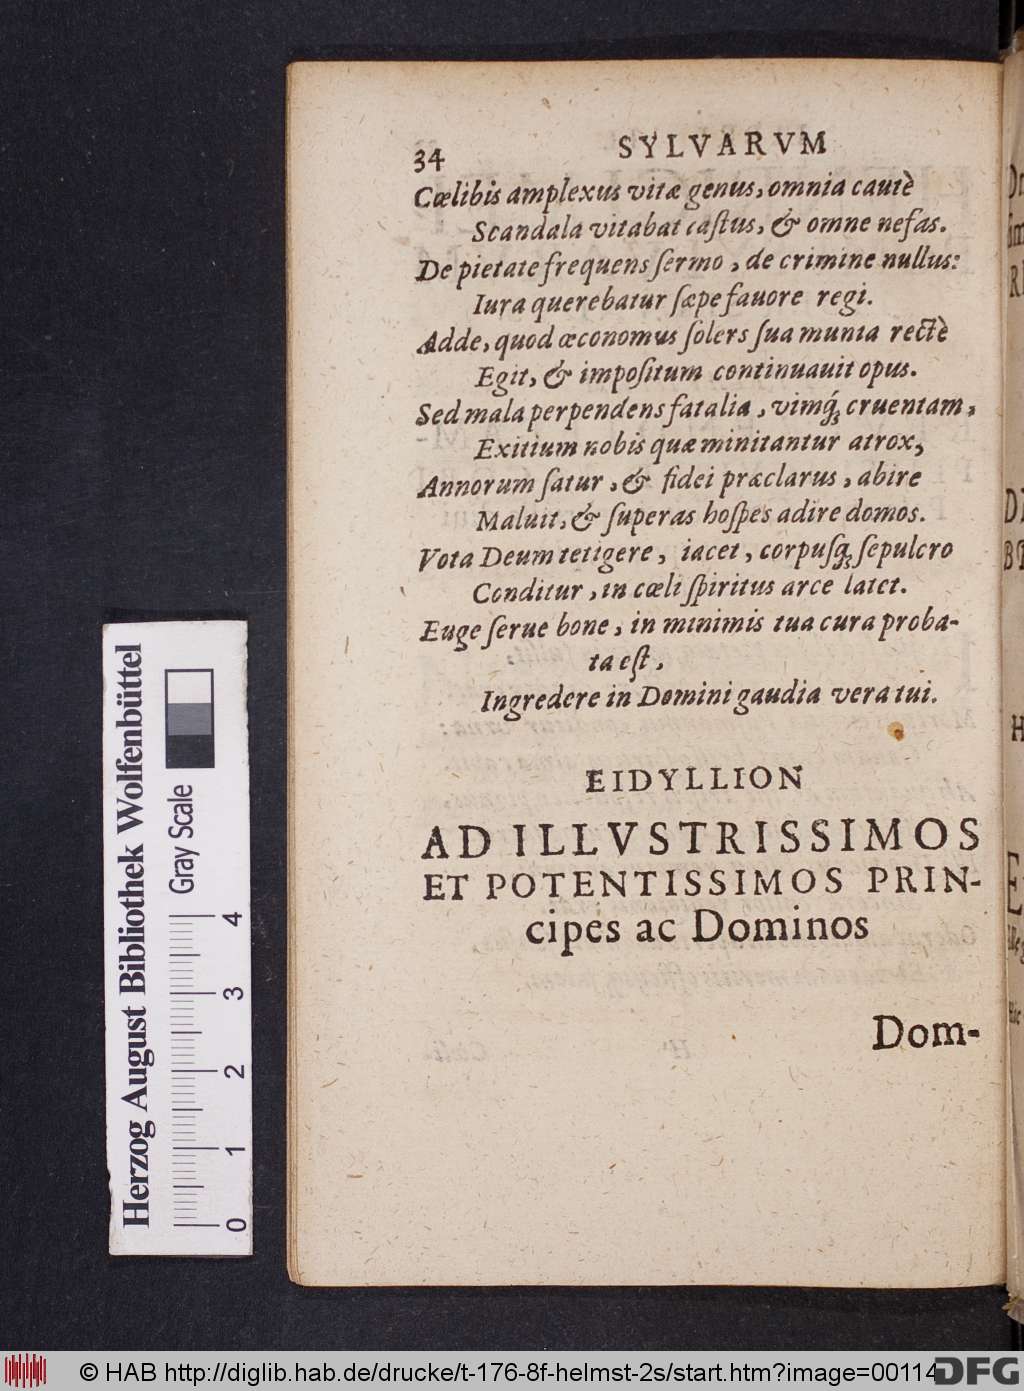 34 SYLVARVM
Cœlibis amplexus vitæ genus, omnia cautè
Scandala vitabat castus, & omne nefas.
De pietate frequens ſermo, de crimine nullus:
Iura querebatur ſæpe fauore regi.
Adde, quod œconomus ſolers ſua munia rectè
Egit, & impoſitum continuauit opus.
Sed mala perpendens fatalia, vimq́; cruentam,
Exitium nobis quæ minitantur atrox,
Annorum ſatur, & fidei præclarus, abire
Maluit, & ſuperas hoſpes adire domos.
Vota Deum tetigere, iacet, corpuſq́; ſepulcro
Conditur, in cœli ſpiritus arce latet.
Euge ſerue bone, in minimis tua cura proba-
ta eſt,
Ingredere in Domini gaudia vera tui.
EIDYLLION
AD ILLVSTRISSIMOS
ET POTENTISSIMOS PRIN-
cipes ac Dominos
Dom-
Herzog August Bibliothek Wolfenbüttel
Gray Scale
0 1 2 3 4
© HAB http://diglib.hab.de/drucke/t-176-8f-helmst-2s/start.htm?image=00114
DFG